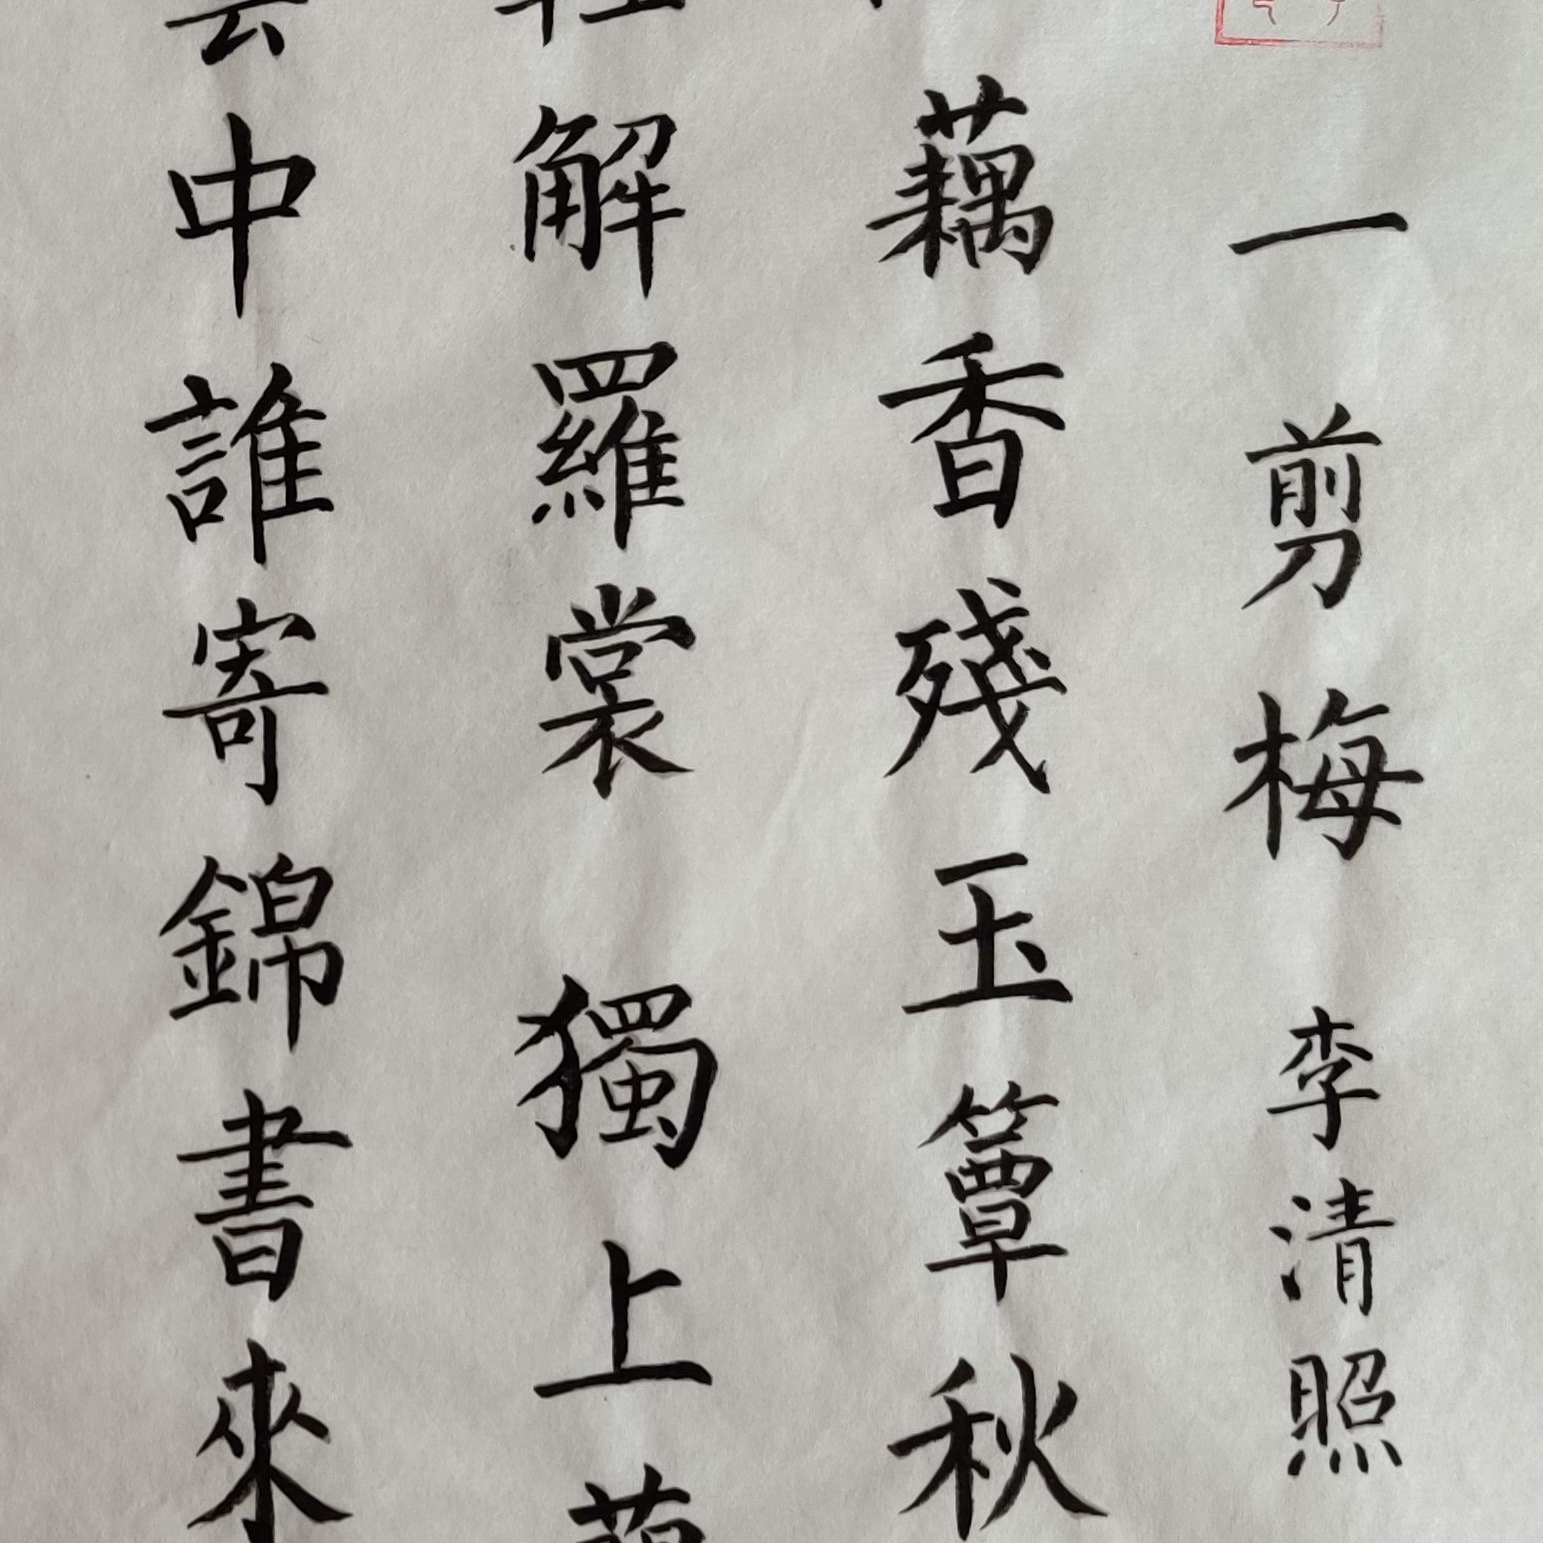 一剪梅 李清照
紅藕香殘玉簟秋
輕解羅裳 獨上蘭
雲中誰寄錦書來